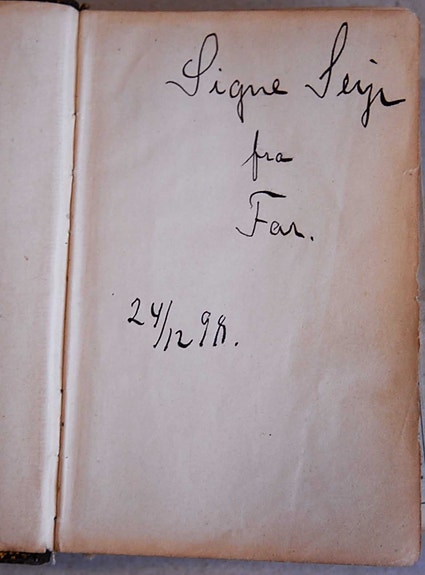 Signe Sejr
fra
Far.
24/12 98.